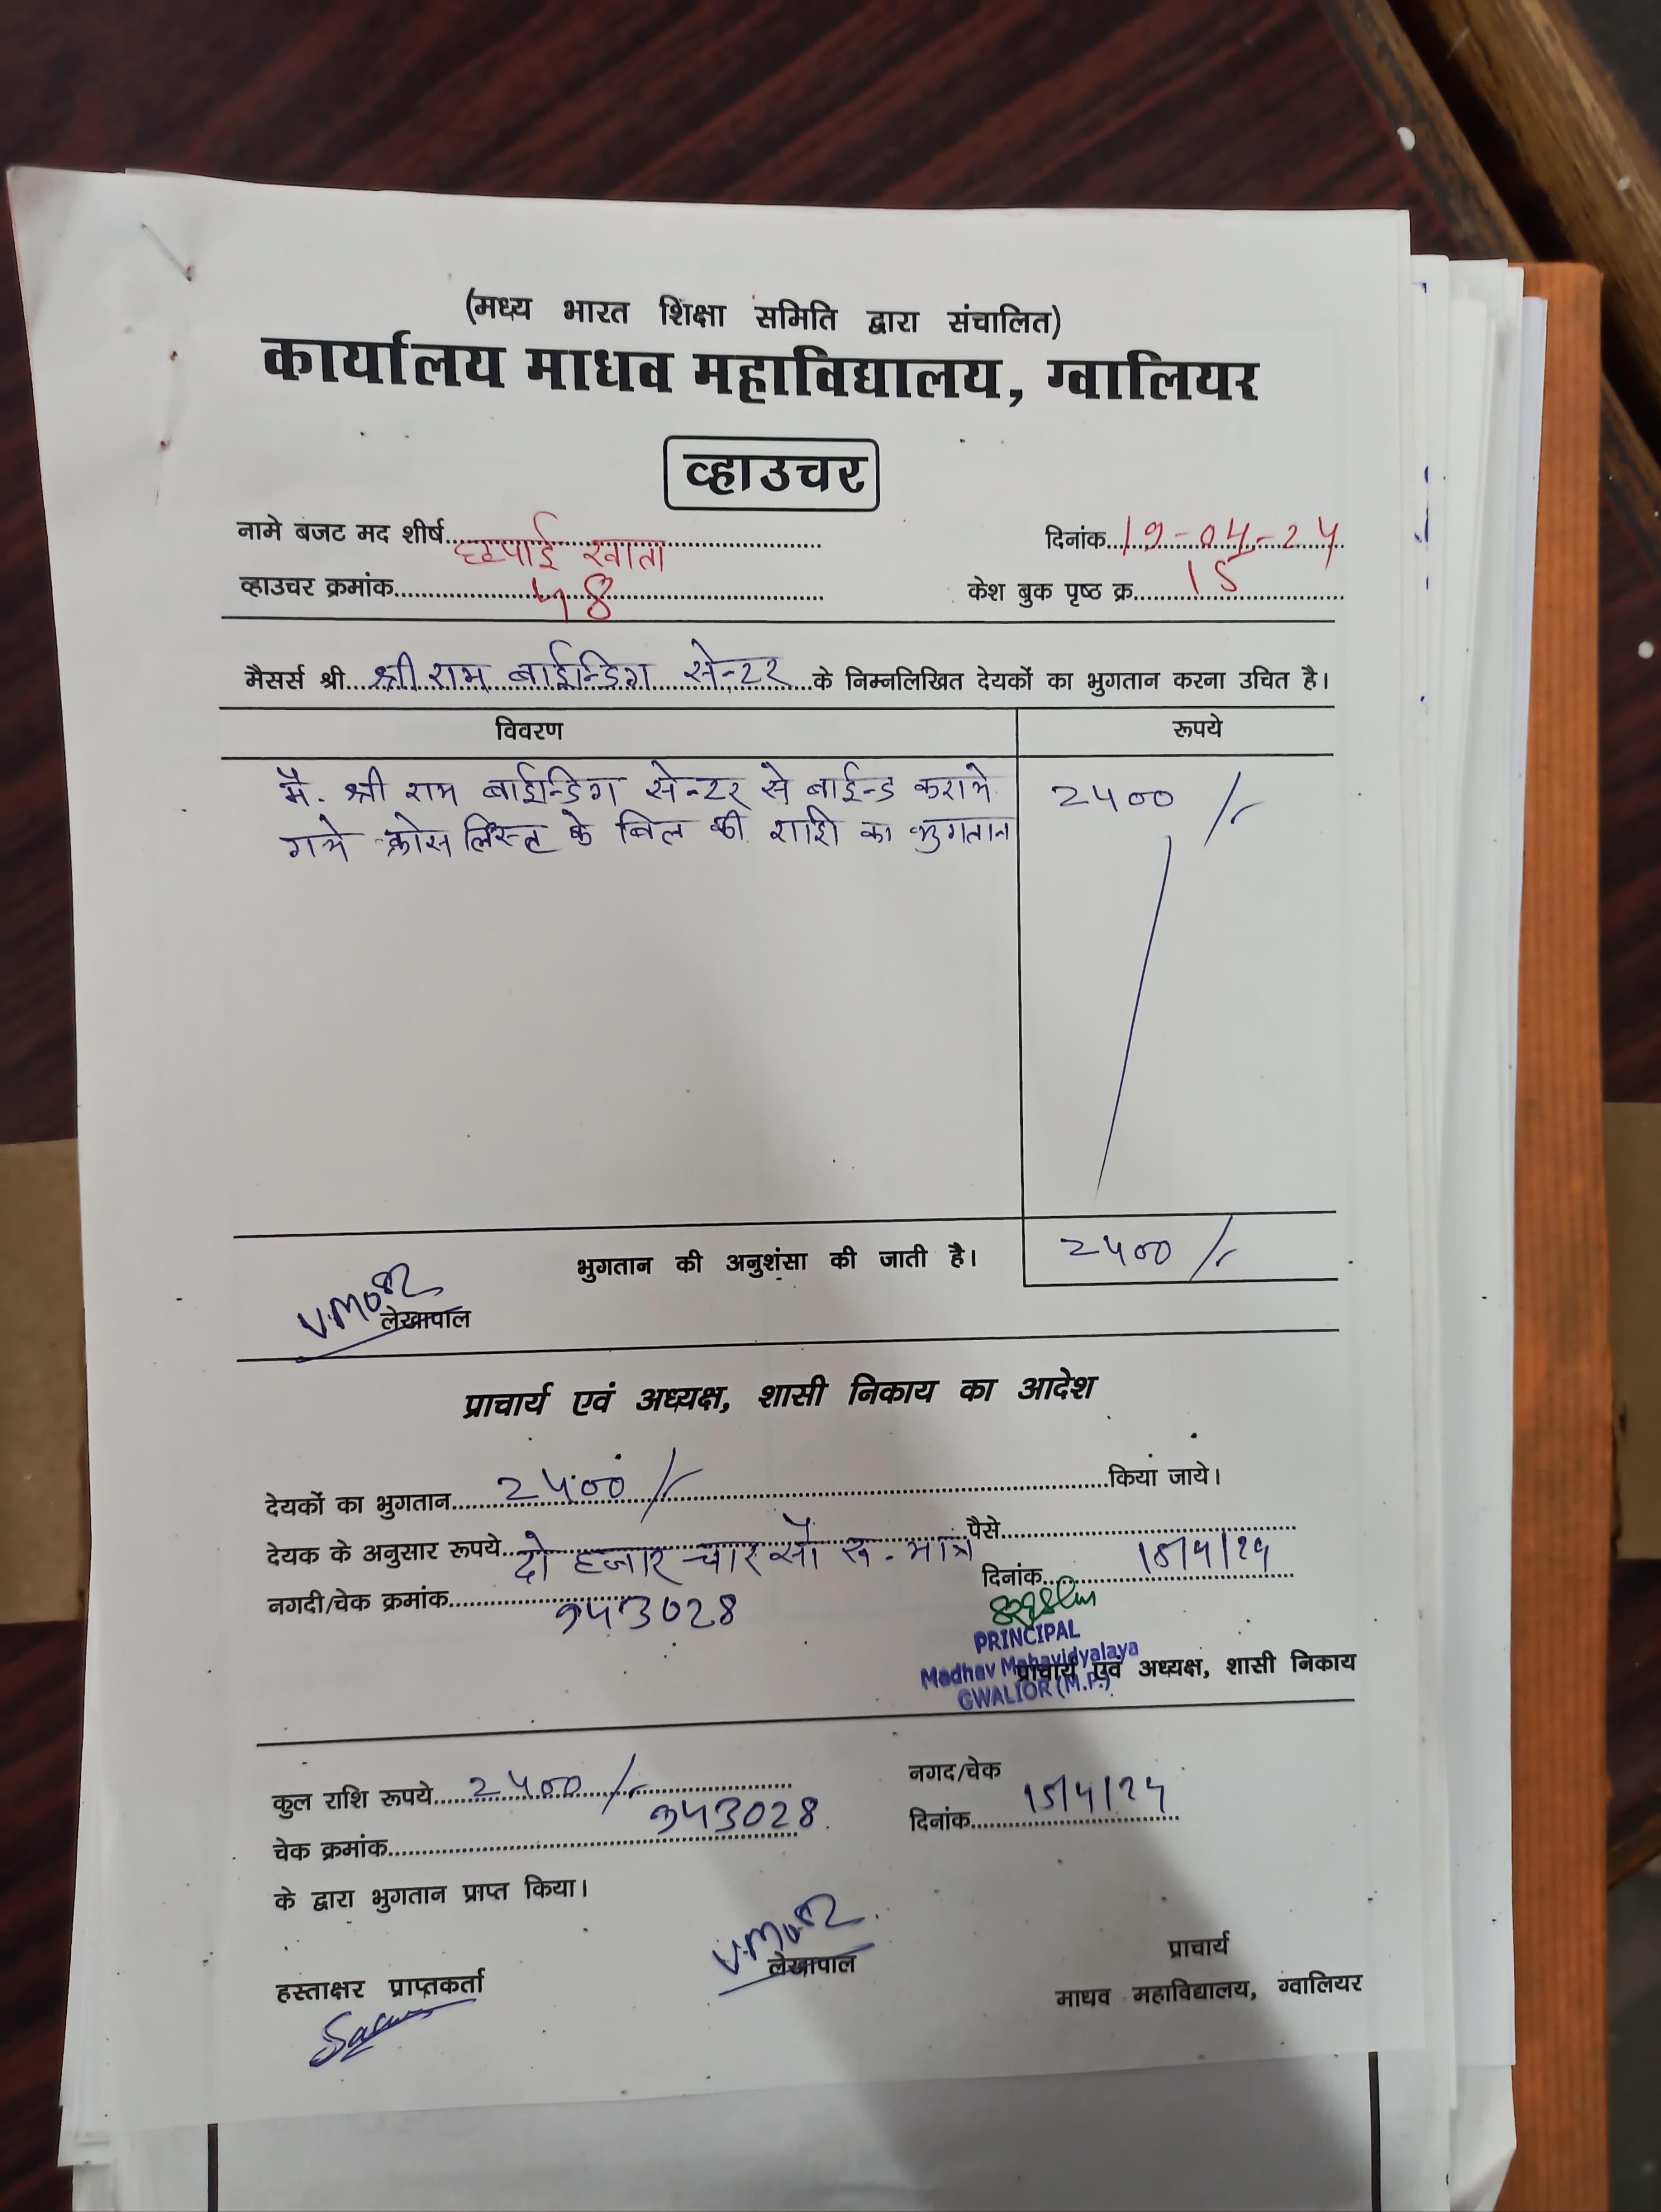 (मध्य भारत शिक्षा समिति द्वारा संचालित)
कार्यालय माधव महाविद्यालय, ग्वालियर
व्हाउचर
नामे बजट मद शीर्ष छपाई खाता दिनांक 19-04-24
व्हाउचर क्रमांक 58 केश बुक पृष्ठ क्र. 15
मैसर्स श्री श्री राम बाईन्डिग सेन्टर के निम्नलिखित देयकों का भुगतान करना उचित है।
विवरण रूपये
मै. श्री राम बाईन्डिग सेन्टर से बाईन्ड कराये 2400/-
गये क्रोस लिस्ट के बिल की राशि का भुगतान
भुगतान की अनुशंसा की जाती है। 2400/-
लेखापाल
प्राचार्य एवं अध्यक्ष, शासी निकाय का आदेश
देयकों का भुगतान 2400/- किया जाये।
देयक के अनुसार रूपये दो हजार चार सौ रू. मात्र पैसे
नगदी/चेक क्रमांक 943028 दिनांक 15/4/24
PRINCIPAL
Madhav Mahavidyalaya
GWALIOR (M.P.)
प्राचार्य एवं अध्यक्ष, शासी निकाय
कुल राशि रूपये 2400/- नगद/चेक
चेक क्रमांक 943028 दिनांक 15/4/24
के द्वारा भुगतान प्राप्त किया।
हस्ताक्षर प्राप्तकर्ता लेखापाल प्राचार्य
माधव महाविद्यालय, ग्वालियर